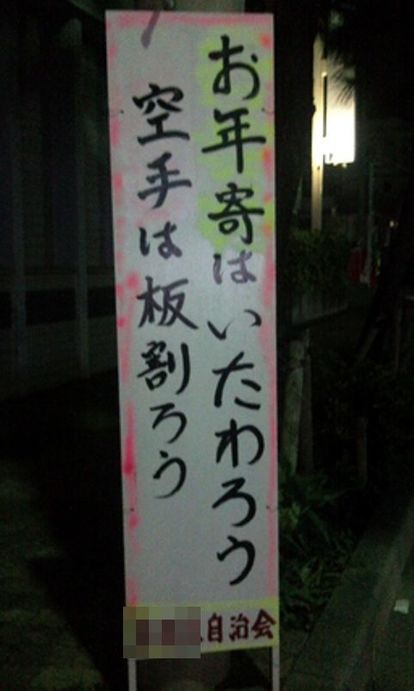 お年寄はいたわろう
空手は板割ろう
自治会